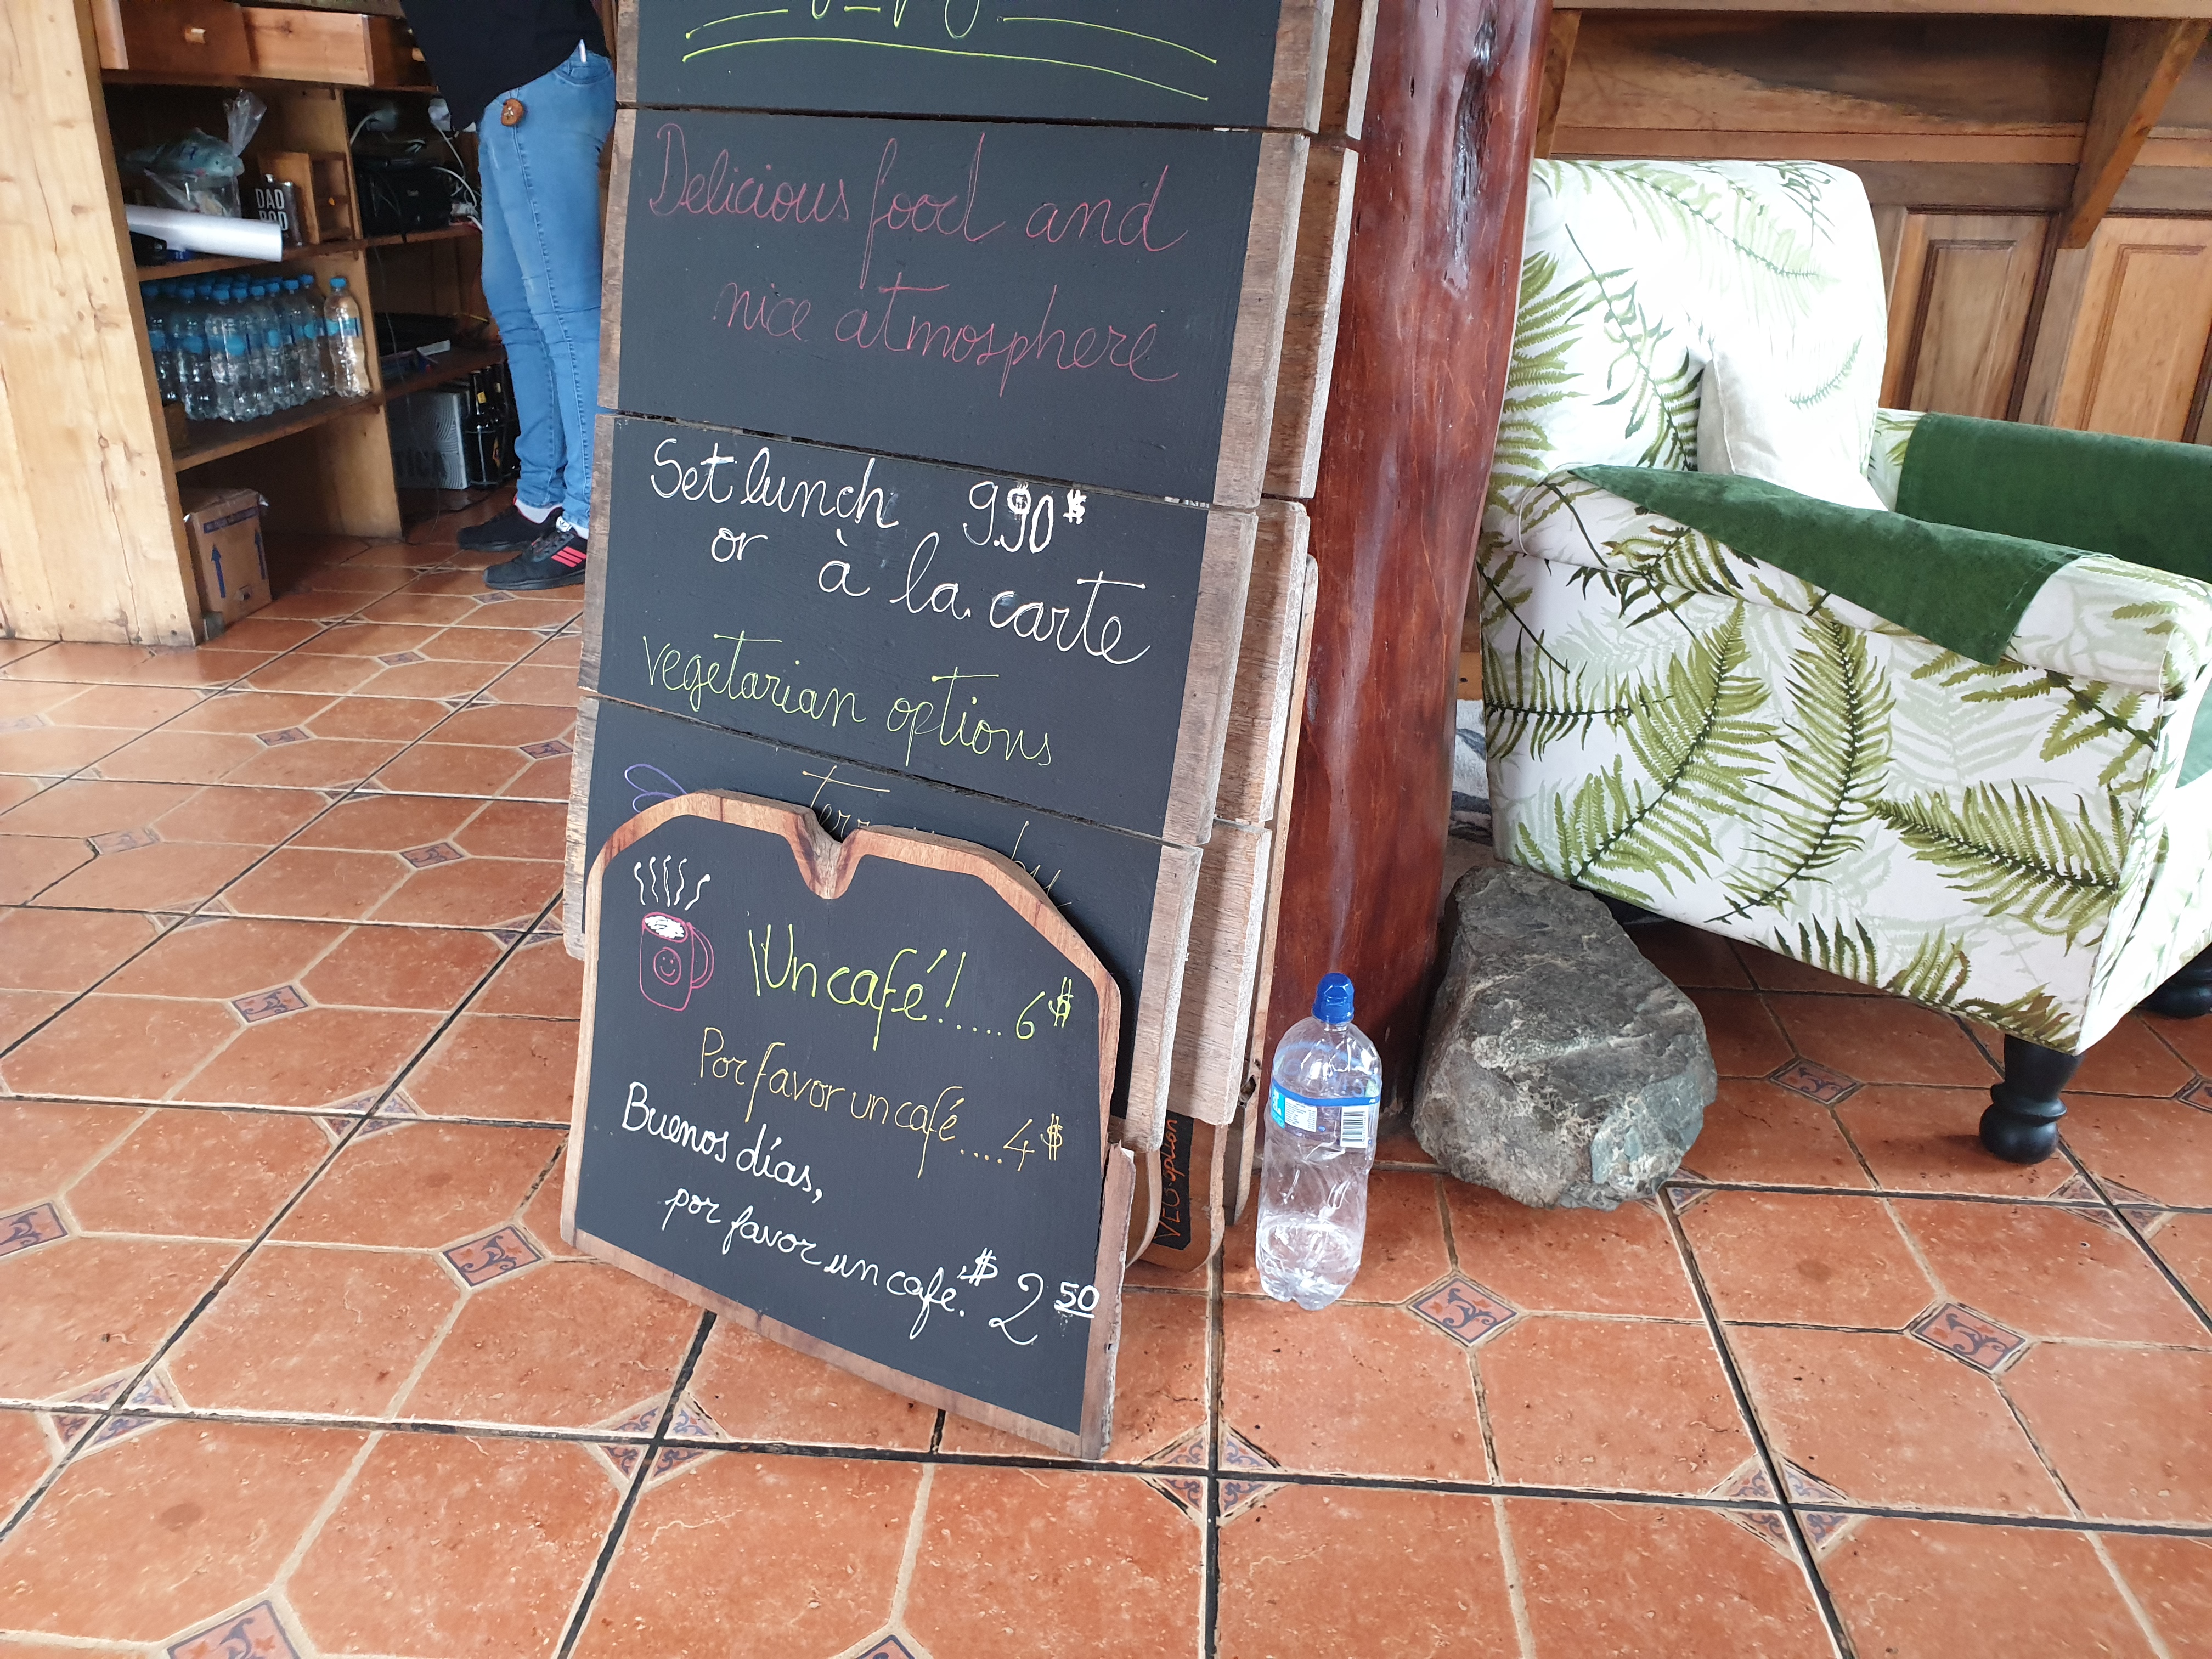 DAD
BOD
Delicious food and
nice atmosphere
Set lunch 9.90$
or à la carte
vegetarian options
¡Un café!.... 6$
Por favor un café.... 4$
Buenos días,
por favor un café. $ 2 50
option